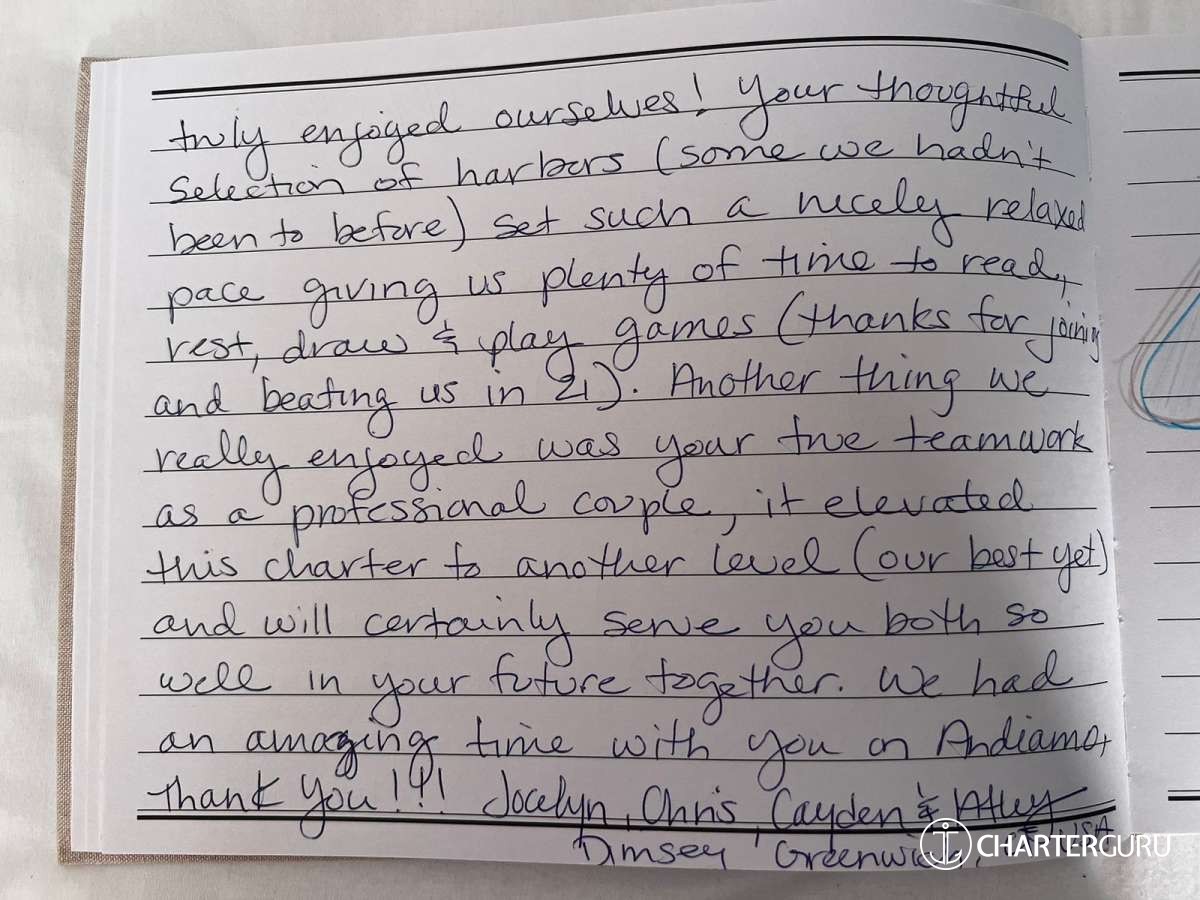 truly enjoyed ourselves! Your thoughtful
selection of harbors (some we hadn't
been to before) set such a nicely relaxed
pace giving us plenty of time to read,
rest, draw & play games (thanks for joining
and beating us in 21). Another thing we
really enjoyed was your true teamwork
as a professional couple, it elevated
this charter to another level (our best yet)
and will certainly serve you both so
well in your future together. We had
an amazing time with you on Andiamo,
thank you!!! Jocelyn, Chris, Cayden &
Dimsey Greenwich, USA
CHARTERGURU